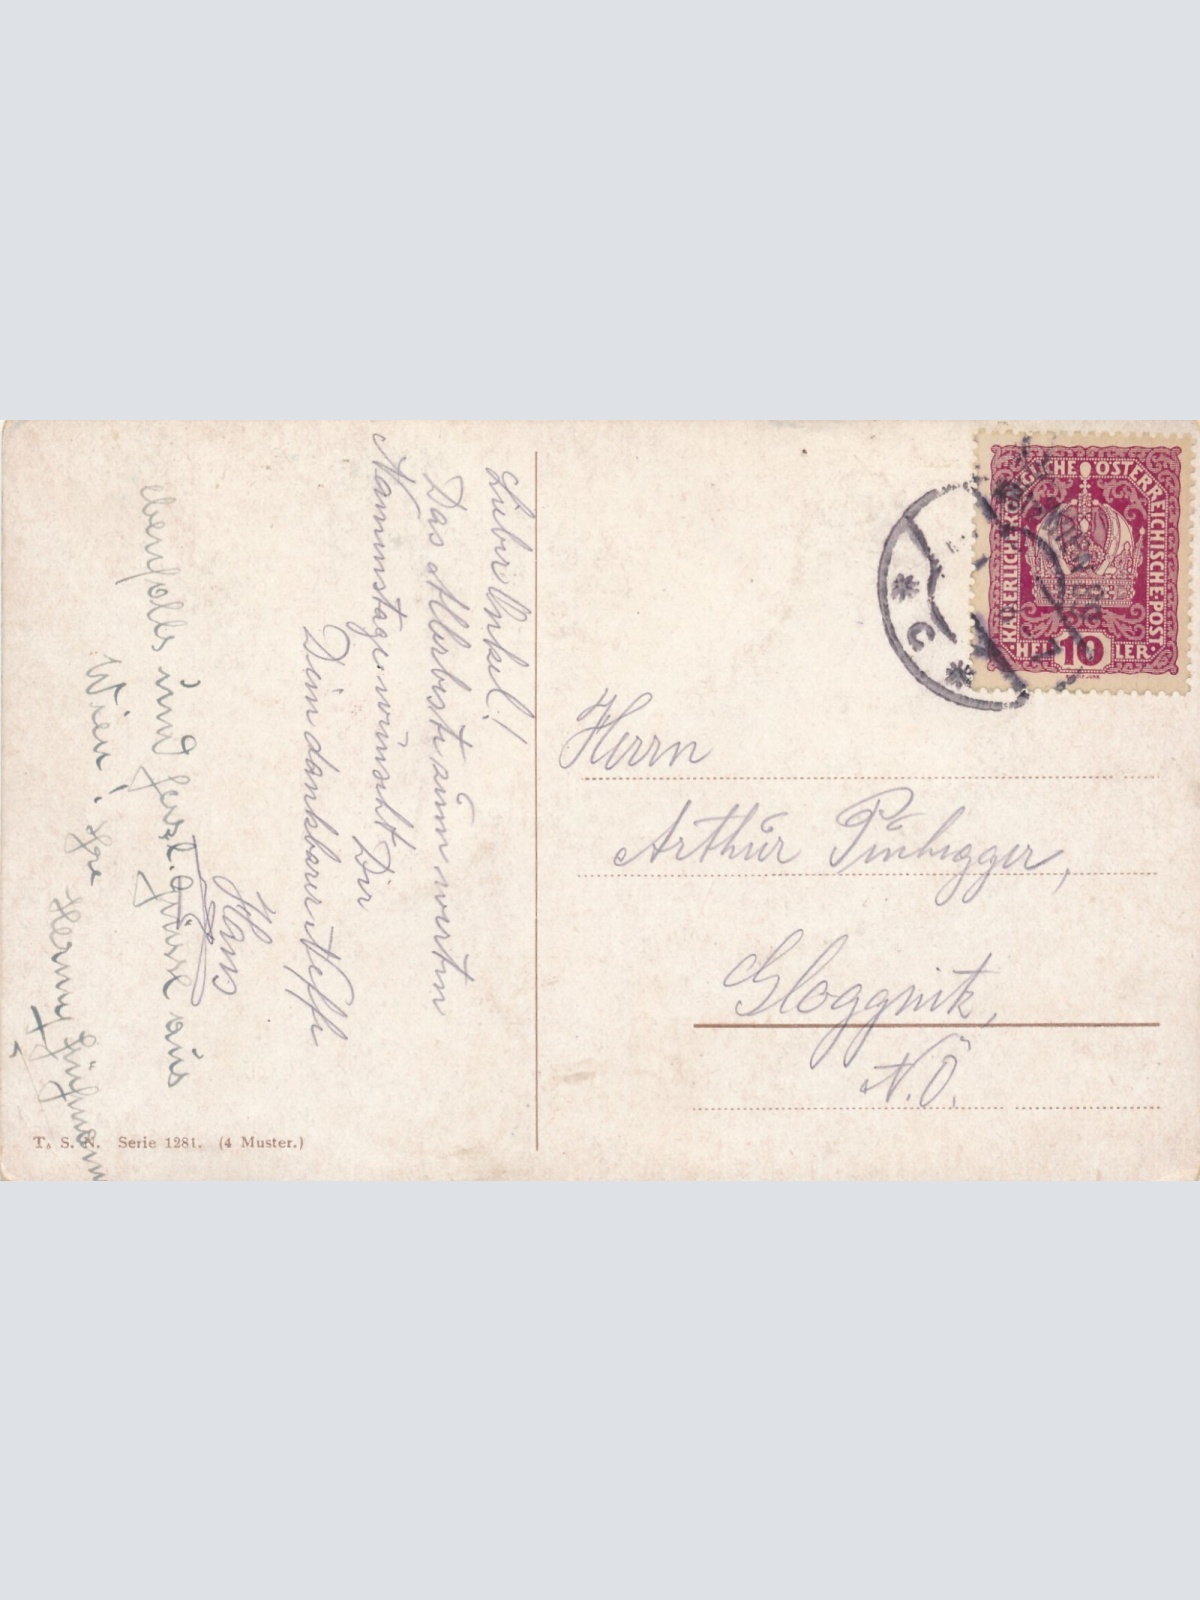 Lieber Onkel!
Das Allerbeste zum werten
Namenstage wünscht Dir
Dein dankbarer Neffe
Hans
ebenfalls und herzl. Grüße aus
Wien!
KAISERLICHE KÖNIGLICHE ÖSTERREICHISCHE POST
10
HELLER
Herrn
Arthur
Gloggnitz,
N.Ö.
T. S. N. Serie 1281. (4 Muster.)